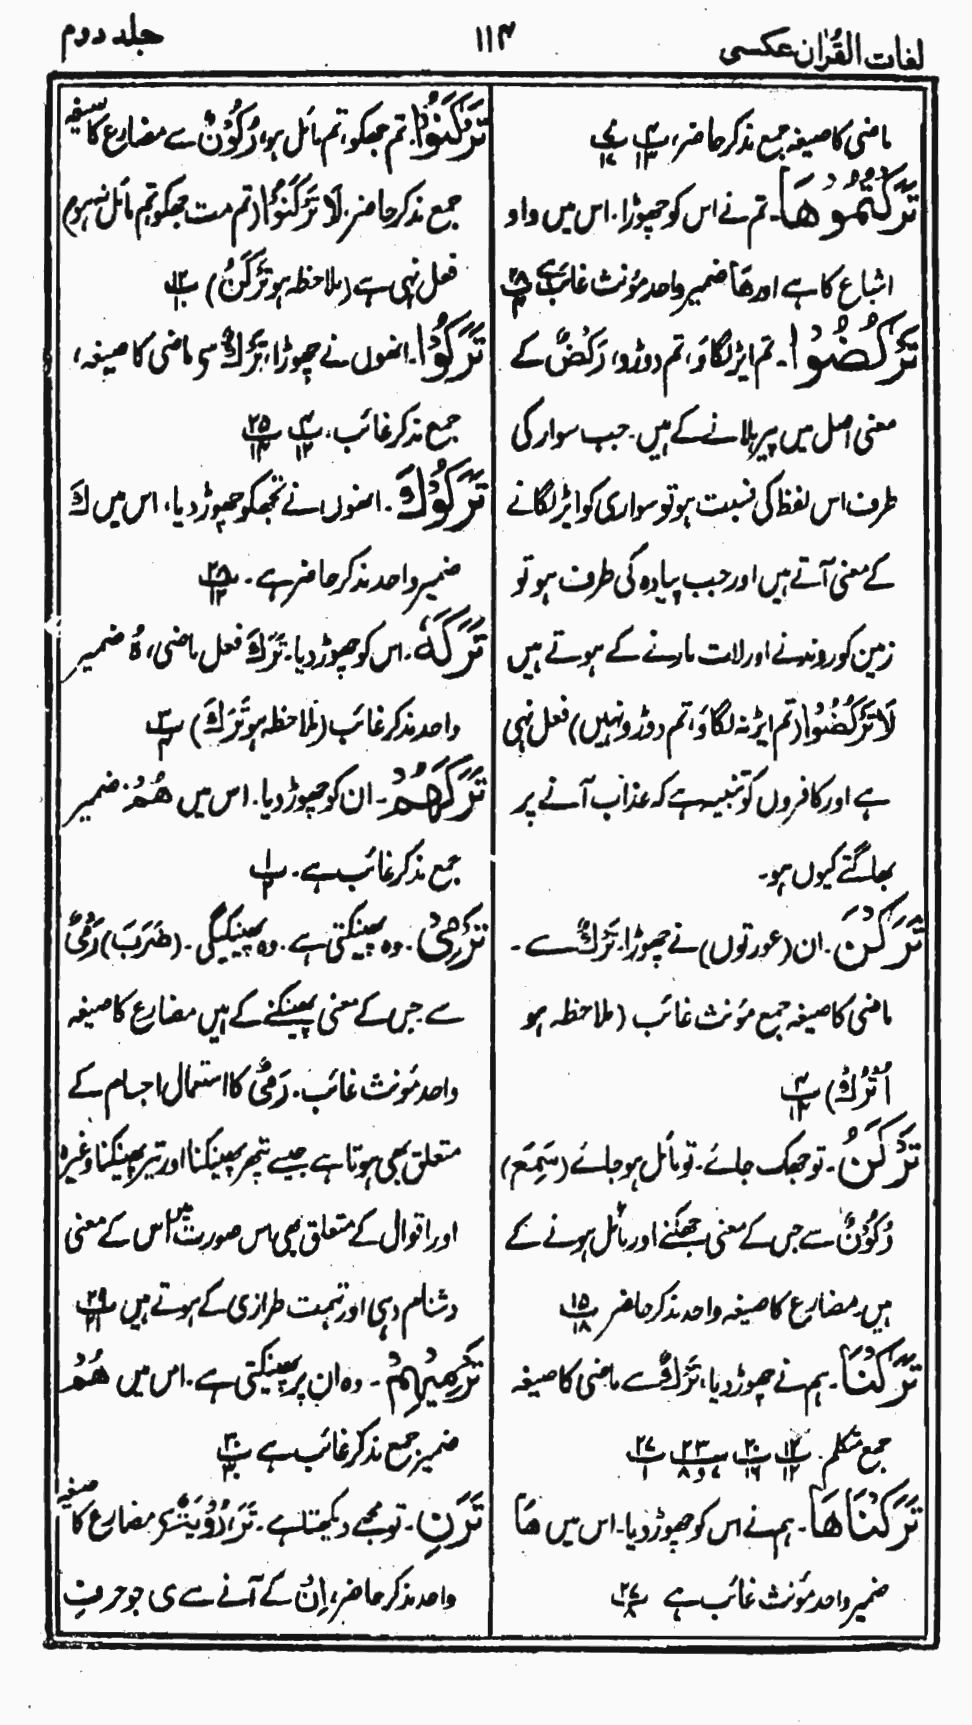 لغات القرآن عکسی
۱۱۴
جلد دوم
ماضی کا صیغہ جمع مذکر حاضر،
تَرَكْتُمُوْهَا۔ تم نے اس کو چھوڑا۔ اس میں واو
اشباع کا ہے اور هَا ضمیر واحد مؤنث غائب ہے پ ۲۸ ۴
تَرْكُضُوْا۔ تم ایڑ لگاؤ، تم دوڑو، رَكْضٌ کے
معنی اصل میں پیر ہلانے کے ہیں۔ جب سوار کی
طرف اس لفظ کی نسبت ہو تو سواری کو ایڑ لگانے
کے معنی آتے ہیں اور جب پیادہ کی طرف ہو تو
زمین کو روندنے اور لات مارنے کے ہوتے ہیں
لَا تَرْكُضُوْا (تم ایڑ نہ لگاؤ، تم دوڑو نہیں) فعل نہی
ہے اور کافروں کو تنبیہ ہے کہ عذاب آنے پر
بھاگتے کیوں ہو۔
تَرَكْنَ۔ ان (عورتوں) نے چھوڑا۔ تَرْكٌ سے۔
ماضی کا صیغہ جمع مؤنث غائب (ملاحظہ ہو
اُتْرُكْ) پ ۴ ۱۳
تَرْكَنُ۔ تو جھک جائے۔ تو مائل ہو جائے (سَمِعَ)
رُكُوْنٌ سے جس کے معنی جھکنے اور مائل ہونے کے
ہیں۔ مضارع کا صیغہ واحد مذکر حاضر پ ۱۵ ۱۸
تَرَكْنَا۔ ہم نے چھوڑ دیا، تَرْكٌ سے ماضی کا صیغہ
جمع متکلم۔ پ ۱۲ ۱۲ پ ۲۰ ۱۶ پ ۲۳ ۷ و ۸ پ ۲۷ ۱
تَرَكْنَاهَا۔ ہم نے اس کو چھوڑ دیا۔ اس میں هَا
ضمیر واحد مؤنث غائب ہے پ ۲۷ ۸
تَرْكَنُوْا۔ تم جھکو، تم مائل ہو، رُكُوْنٌ سے مضارع کا صیغہ
جمع مذکر حاضر۔ لَا تَرْكَنُوْا (تم مت جھکو تم مائل نہ ہو)
فعل نہی ہے (ملاحظہ ہو تَرْكَنُ) پ ۱۲ ۱۰
تَرَكُوْا۔ انھوں نے چھوڑا، تَرْكٌ سے ماضی کا صیغہ،
جمع مذکر غائب، پ ۴ ۱۲ پ ۲۵ ۱۴
تَرَكُوْكَ۔ انھوں نے تجھ کو چھوڑ دیا، اس میں كَ
ضمیر واحد مذکر حاضر ہے۔ پ ۲۸ ۱۲
تَرَكَهٗ۔ اس کو چھوڑ دیا۔ تَرَكَ فعل ماضی، هٗ ضمیر
واحد مذکر غائب (ملاحظہ ہو تَرَكَ) پ ۳ ۴
تَرَكَهُمْ۔ ان کو چھوڑ دیا۔ اس میں هُمْ ضمیر
جمع مذکر غائب ہے۔ پ ۱ ۲
تَرْمِيْ۔ وہ پھینکتی ہے۔ وہ پھینکیگی۔ (ضَرَبَ) رَمْیٌ
سے جس کے معنی پھینکنے کے ہیں مضارع کا صیغہ
واحد مؤنث غائب۔ رَمْیٌ کا استعمال اجسام کے
متعلق بھی ہوتا ہے جیسے پتھر پھینکنا اور تیر پھینکنا وغیرہ
اور اقوال کے متعلق بھی اس صورت میں اس کے معنی
دشنام دہی اور تہمت طرازی کے ہوتے ہیں پ ۲۹ ۲۱
تَرْمِيْهِمْ۔ وہ ان پر پھینکتی ہے۔ اس میں هُمْ
ضمیر جمع مذکر غائب ہے پ ۳۰ ۳۰
تَرَنِ۔ تو مجھے دیکھتا ہے۔ تَرَ، رُؤْيَةٌ سے مضارع کا صیغہ
واحد مذکر حاضر، اِنْ کے آنے سے ی جو حرف